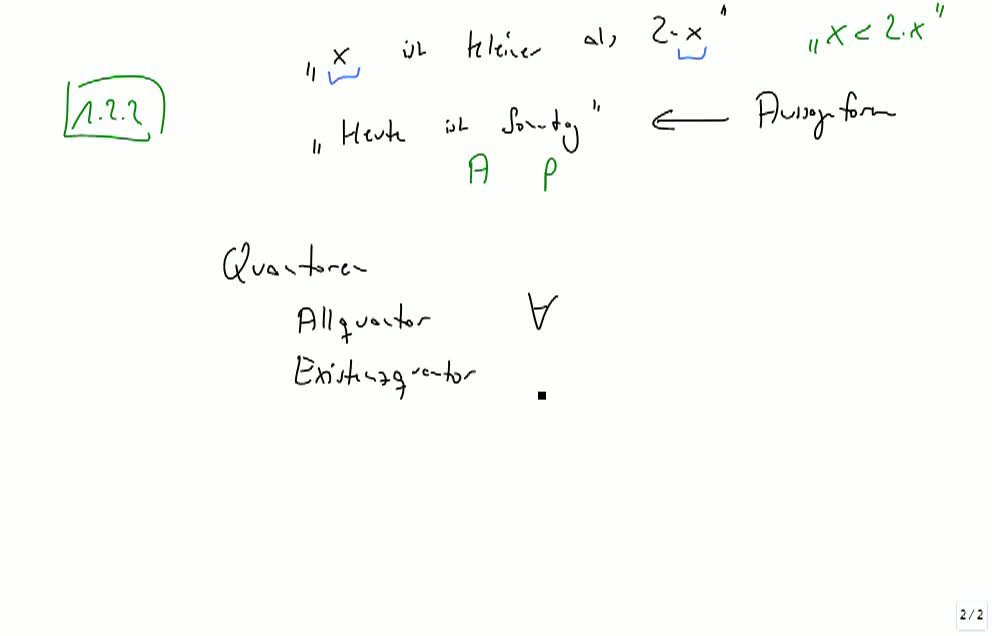 „x ist kleiner als 2·x“ „x < 2·x“
1.2.2
„Heute ist Sonntag“ ⟸ Aussageform
A p
Quantoren
Allquantor ∀
Existenzquantor
2/2